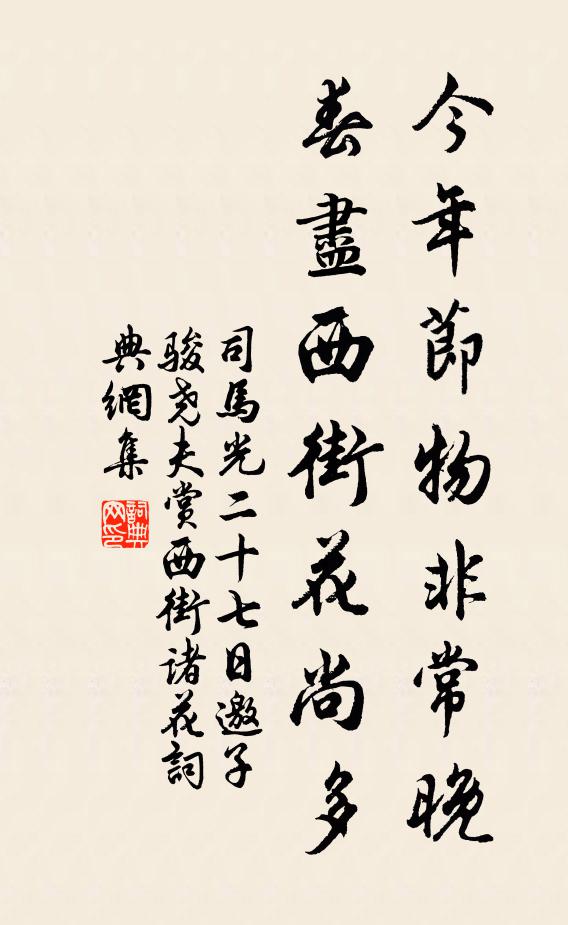 今年節物非常晚
春盡西街花尚多
司馬光二十七日邀子
駿堯夫賞西街諸花詞
典網集
詞典
网印